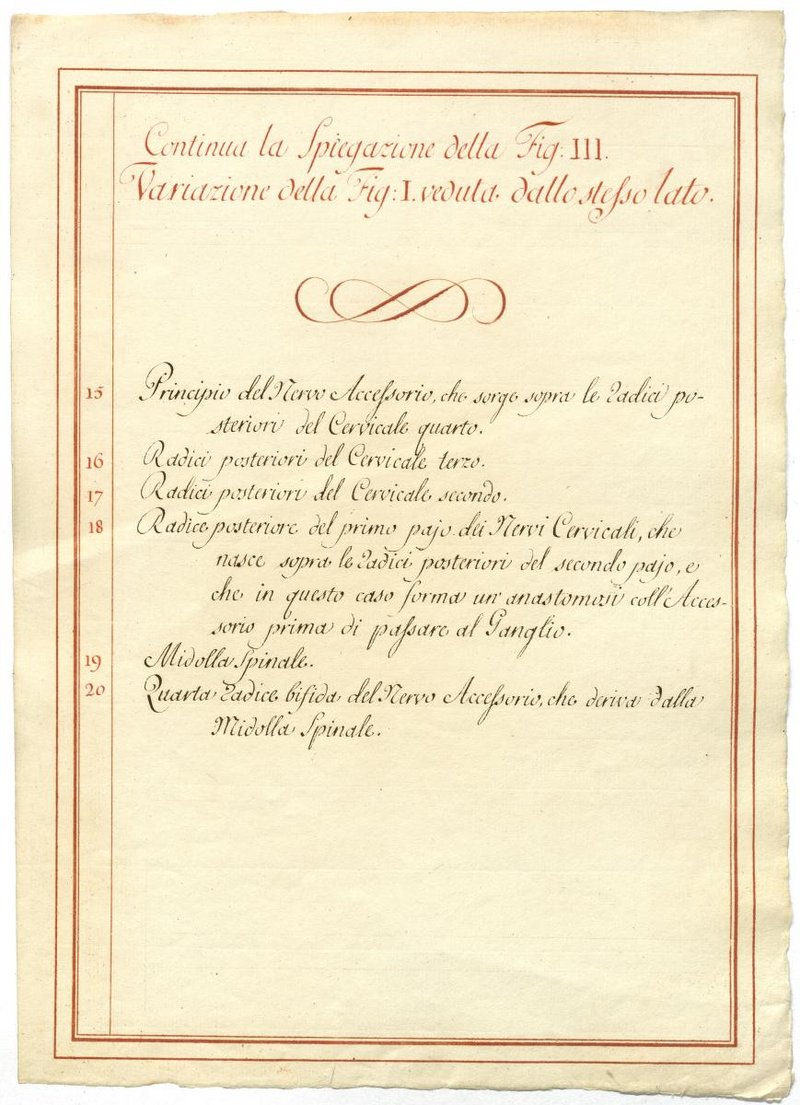 Continua la Spiegazione della Fig: III.
Variazione della Fig: I. veduta dallo stesso lato.
15 Principio del Nervo Accessorio, che sorge sopra le Radici po-
steriori del Cervicale quarto.
16 Radici posteriori del Cervicale terzo.
17 Radici posteriori del Cervicale secondo.
18 Radice posteriore del primo pajo dei Nervi Cervicali, che
nasce sopra le Radici posteriori del secondo pajo, e
che in questo caso forma un'anastomosi coll'Acces-
sorio prima di passare al Ganglio.
19 Midolla Spinale.
20 Quarta Radice bifida del Nervo Accessorio, che deriva dalla
Midolla Spinale.